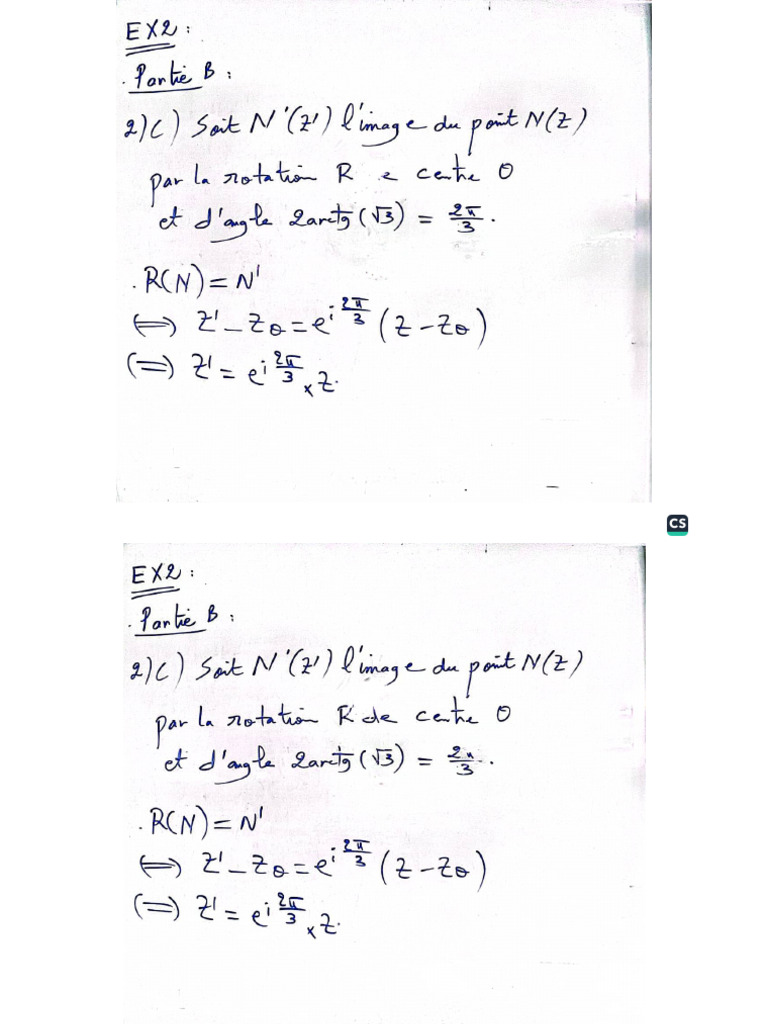 EX2 :
. Partie B :
2)c) Soit N'(Z') l'image du point N(Z)
par la rotation R e centre O
et d'angle 2arctg(√3) = 2π/3.
. R(N) = N'
⟺ Z' - Z₀ = e^{i 2π/3} (Z - Z₀)
⟺ Z' = e^{i 2π/3} × Z.
CS
EX2 :
. Partie B :
2)c) Soit N'(Z') l'image du point N(Z)
par la rotation R de centre O
et d'angle 2arctg(√3) = 2π/3.
. R(N) = N'
⟺ Z' - Z₀ = e^{i 2π/3} (Z - Z₀)
⟺ Z' = e^{i 2π/3} × Z.